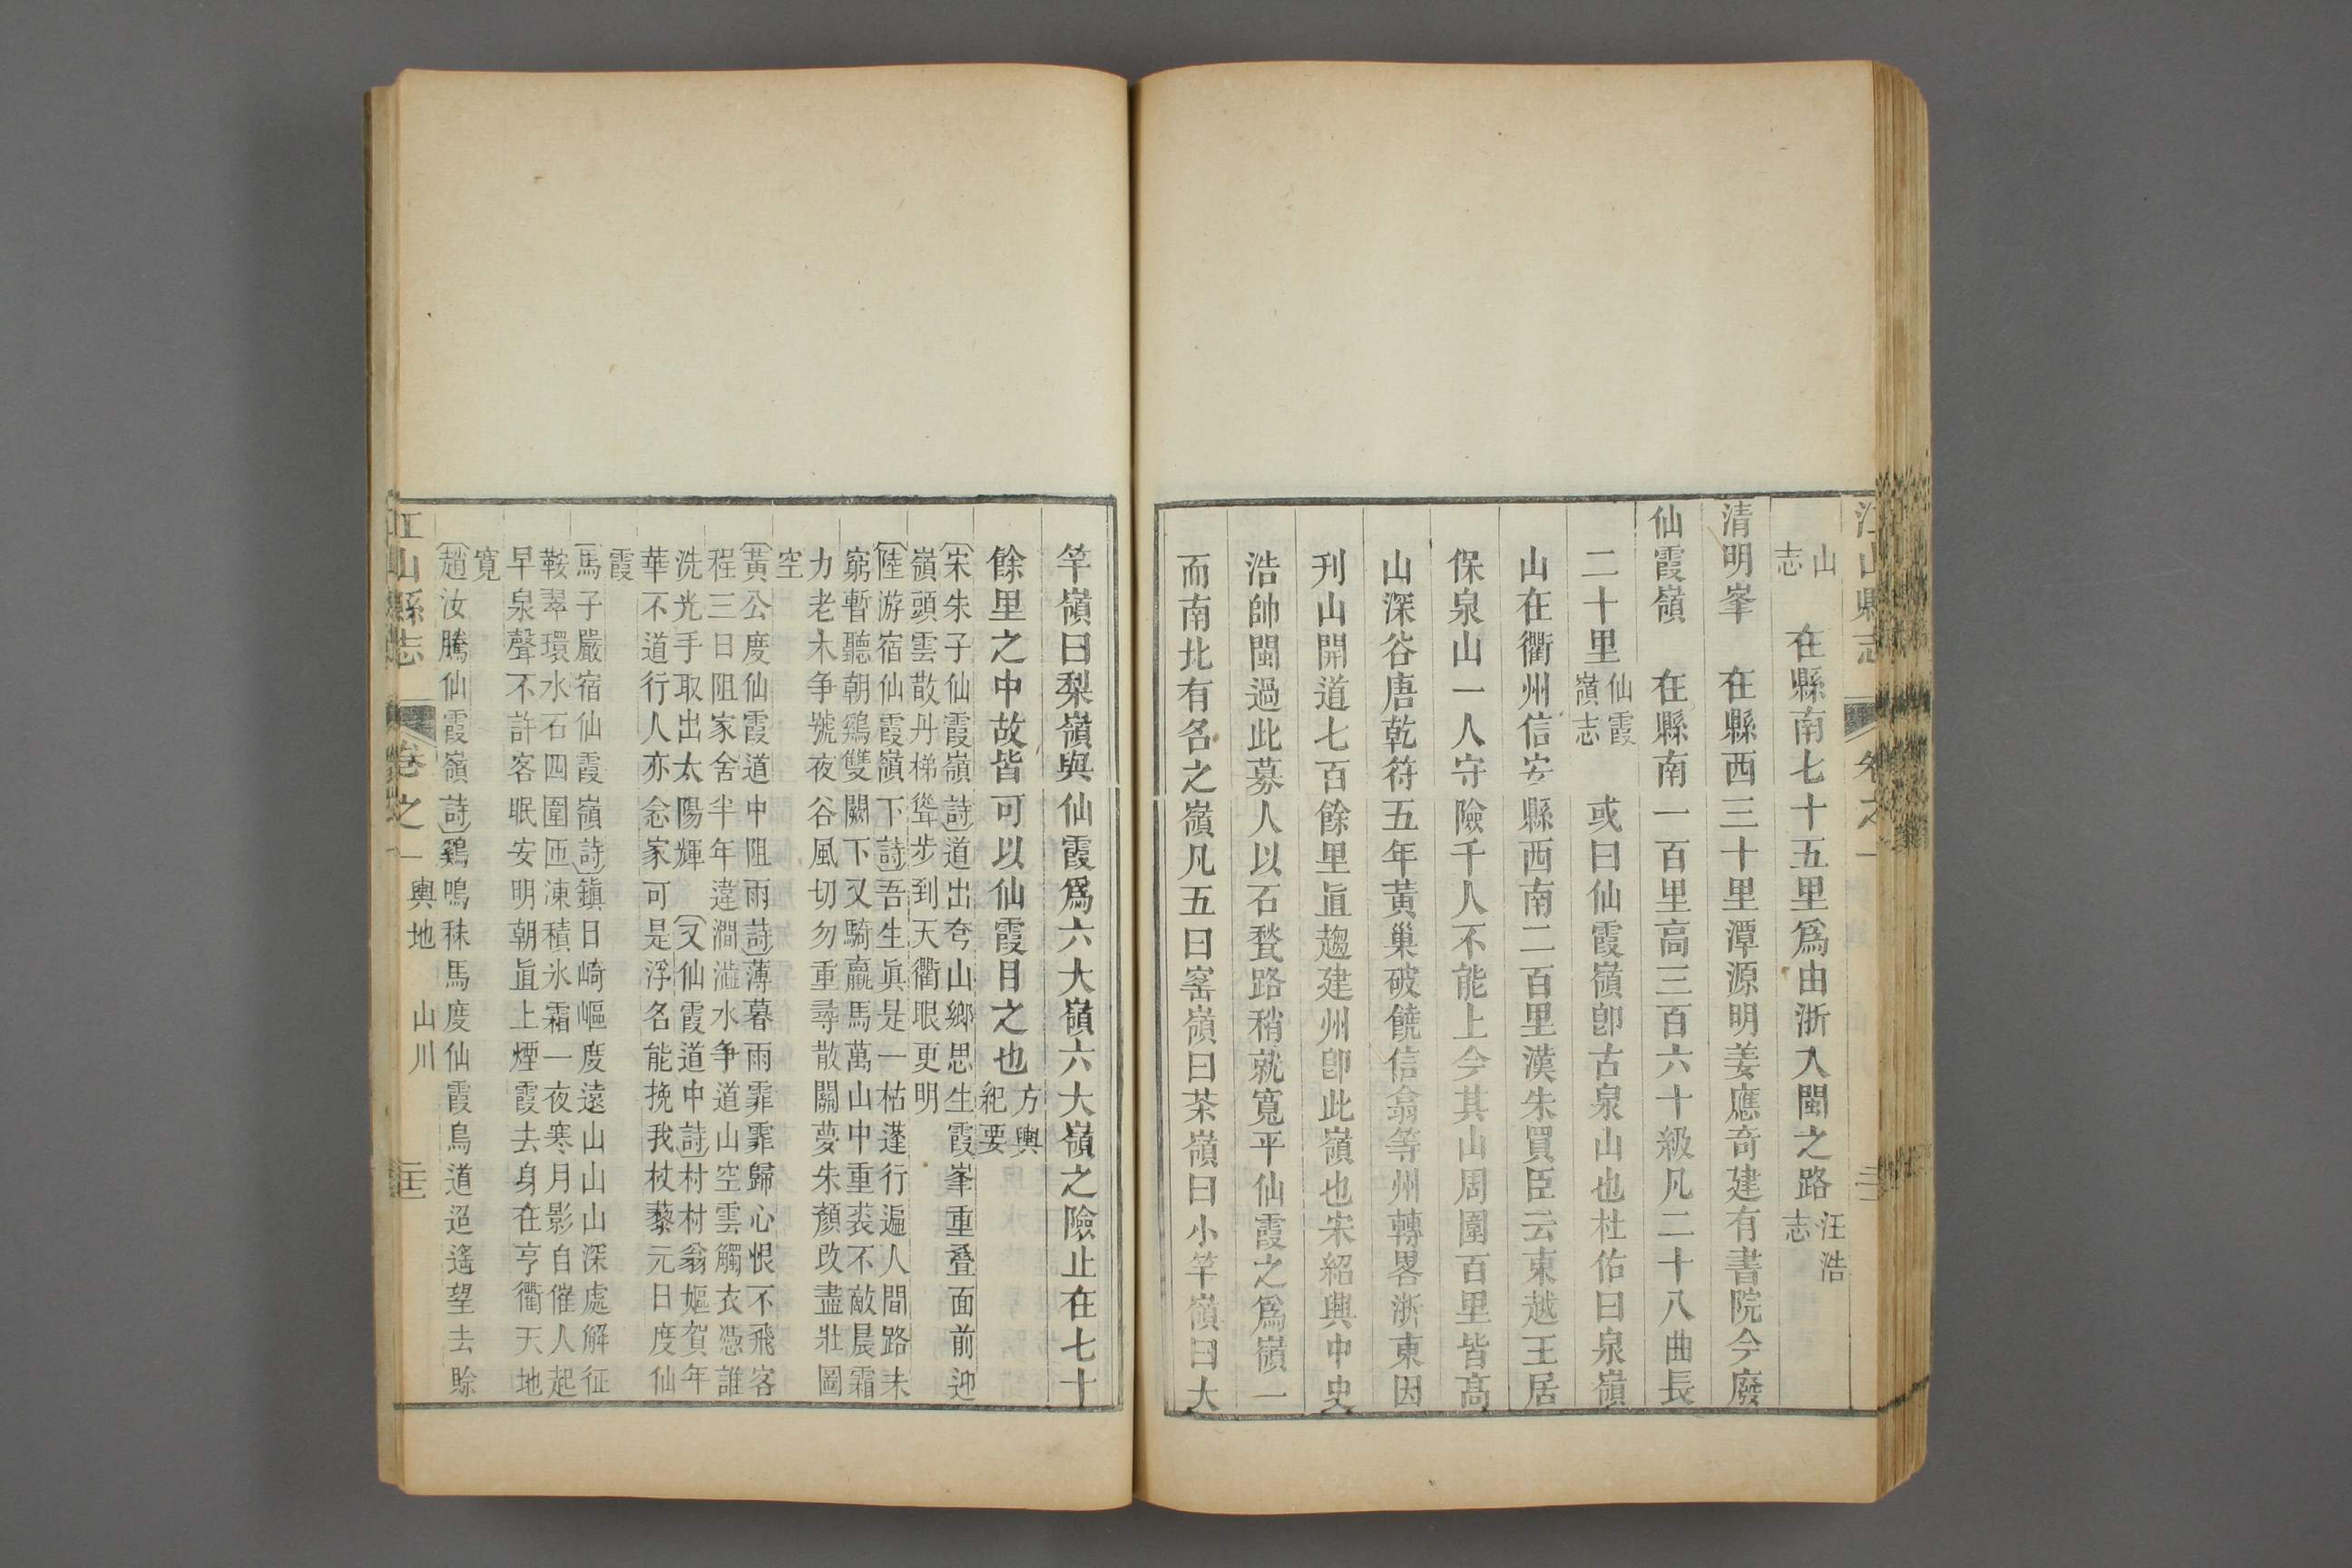 江山縣志
卷之一
山
志
在縣南七十五里爲由浙入閩之路
汪浩
志
清明峯 在縣西三十里潭源明姜應奇建有書院今廢
仙霞嶺 在縣南一百里高三百六十級凡二十八曲長
二十里
仙霞
嶺志
或曰仙霞嶺卽古泉山也杜佑曰泉嶺
山在衢州信安縣西南二百里漢朱買臣云東越王居
保泉山一人守險千人不能上今其山周圍百里皆高
山深谷唐乾符五年黃巢破饒信翕等州轉畧浙東因
刋山開道七百餘里直趨建州卽此嶺也宋紹興中史
浩帥閩過此募人以石甃路稍就寬平仙霞之爲嶺一
而南北有名之嶺凡五曰窰嶺曰茶嶺曰小竿嶺曰大
竿嶺曰梨嶺與仙霞爲六大嶺六大嶺之險止在七十
餘里之中故皆可以仙霞目之也
方輿
紀要
宋朱子仙霞嶺詩道出夸山鄉思生霞峯重叠面前迎
嶺頭雲散丹梯聳步到天衢眼更明
陸游宿仙霞嶺下詩吾生眞是一枯蓬行遍人間路未
窮暫聽朝鷄雙闕下又騎羸馬萬山中重裘不敵晨霜
力老木争號夜谷風切勿重尋散關夢朱顏改盡壯圖
空
黃公度仙霞道中阻雨詩薄暮雨霏霏歸心恨不飛客
程三日阻家舍半年違澗溢水争道山空雲觸衣憑誰
洗光手取出太陽輝 又仙霞道中詩村村翁嫗賀年
華不道行人亦念家可是浮名能挽我杖藜元日度仙
霞
馬子嚴宿仙霞嶺詩鎭日崎嶇度遠山山山深處解征
鞍翠環水石四圍匝凍積氷霜一夜寒月影自催人起
早泉聲不許客眠安明朝直上煙霞去身在亨衢天地
寛
趙汝騰仙霞嶺詩鷄鳴秣馬度仙霞鳥道迢遙望去賒
江山縣志
卷之一 輿地 山川